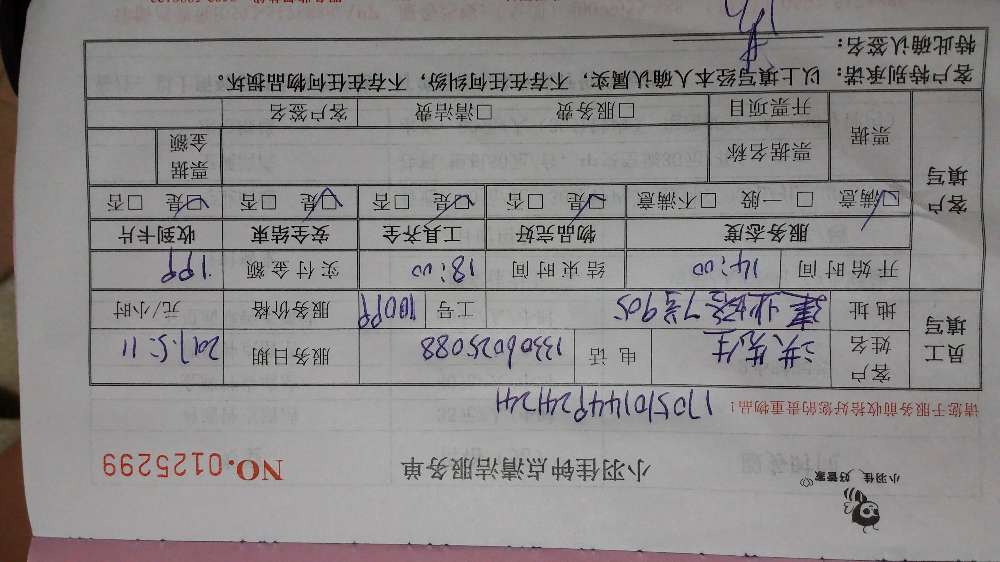 小羽佳 好管家
小羽佳钟点清洁服务单
NO.0125299
请您于服务前收拾好您的贵重物品!
170510144924241
员工填写
客户姓名 洪先生 电话 13306025088 服务日期 2017.5.11
地址 建业路7号905 工号 100PP 服务价格 元/小时
开始时间 14:00 结束时间 18:00 实付金额 199
客户填写
服务态度 物品完好 工具齐全 安全结束 收到卡片
☑满意 □一般 □不满意 ☑是 □否 ☑是 □否 ☑是 □否 ☑是 □否
票据 票据名称 票据金额
开票项目 □服务费 □清洁费 客户签名
客户特别承诺:以上填写经本人确认属实,不存在任何纠纷,不存在任何物品损坏。
特此确认签名: